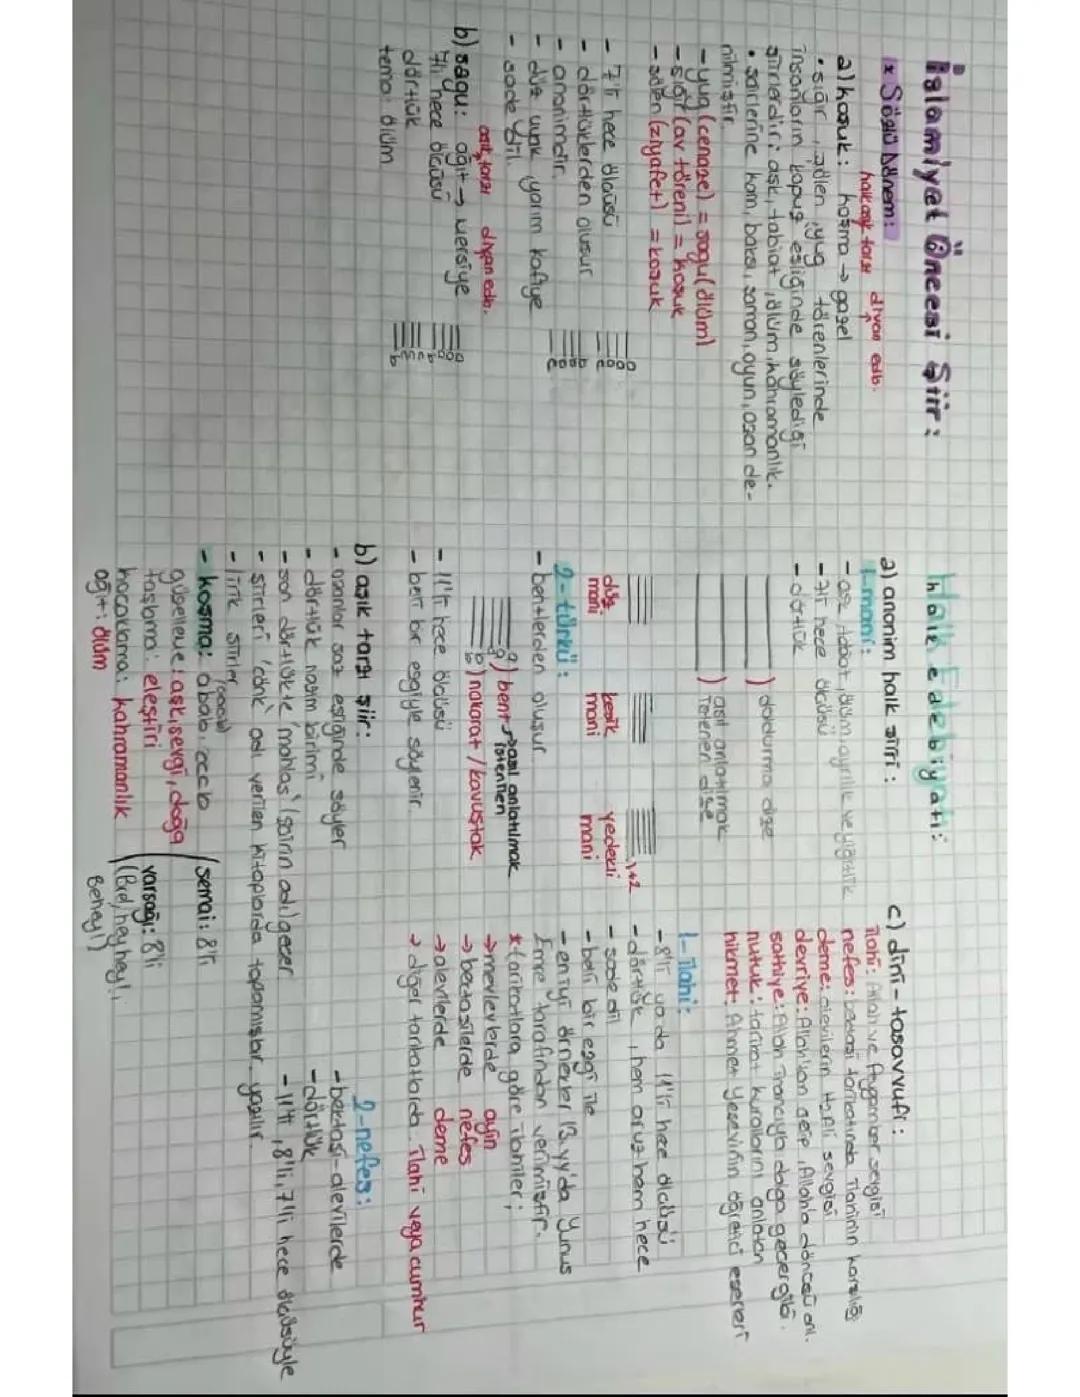 İslamiyet Öncesi Şiir:
* Sözlü Dönem:
halk aşık tarzı divan edb.
a) koşuk: koşma → gazel
• sığır, şölen, yuğ törenlerinde
insanların kopuz eşliğinde söylediği
şiirlerdir: aşk, tabiat, ölüm, kahramanlık.
• şairlerine kam, baksı, şaman, oyun, ozan de-
nilmiştir.
- yuğ (cenaze) = sagu (ölüm)
- sığır (av töreni) = koşuk
- şölen (ziyafet) = koşuk
- 7li hece ölçüsü
- dörtlüklerden oluşur
- anonimdir.
- düz uyak, yarım kafiye
- sade dil.
aşık tarzı divan edb.
b) sagu: ağıt → mersiye
7li hece ölçüsü
dörtlük
tema: ölüm
Halk Edebiyatı:
a) anonim halk şiiri:
1-mani:
- aşk, tabiat, ölüm, ayrılık ve yiğitlik
- 7li hece ölçüsü
- dörtlük
) doldurma dize
) asıl anlatılmak
istenen dize
düz mani
kesik mani
yedekli mani
+2
2-türkü:
- bentlerden oluşur
) bent → asıl anlatılmak
istenilen
) nakarat / kavuştak
- 11'li hece ölçüsü
- belli bir ezgiyle söylenir.
b) aşık tarzı şiir:
- ozanlar saz eşliğinde söyler
- dörtlük nazım birimi
- son dörtlükte 'mahlas' (şairin adı) geçer
- şiirleri 'cönk' adı verilen kitaplarda toplamışlar.
- lirik şiirler
- koşma: abab/cccb
güzelleme: aşk, sevgi, doğa
taşlama: eleştiri
koçaklama: kahramanlık
ağıt: ölüm
semai: 8'li
varsağı: 8'li
(Bre!, hey hey!,
Behey!)
c) dini-tasavvufi:
ilahi: Allah ve Peygamber sevgisi
nefes: bektaşi tarikatında ilahinin karşılığı
deme: alevilerin Hz Ali sevgisi
devriye: Allah'tan gelip, Allah'a dönüşü anl.
şathiye: Allah inancıyla dalga geçer gibi.
nutuk: tarikat kurallarını anlatan
hikmet: Ahmet Yesevi'nin öğretici eserleri
1-ilahi:
- 8'li ya da 11'li hece ölçüsü
- dörtlük, hem aruz hem hece
- sade dil
- belli bir ezgi ile
- en iyi örnekler 13. yy'da Yunus
Emre tarafından verilmiştir.
* tarikatlara göre ilahiler;
→ mevlevilerde ayin
→ bektaşilerde nefes
→ alevilerde deme
→ diğer tarikatlarda ilahi veya cumhur
2-nefes:
- bektaşi-alevilerde
- dörtlük
- 11'li, 8'li, 7'li hece ölçüsüyle
yazılır.